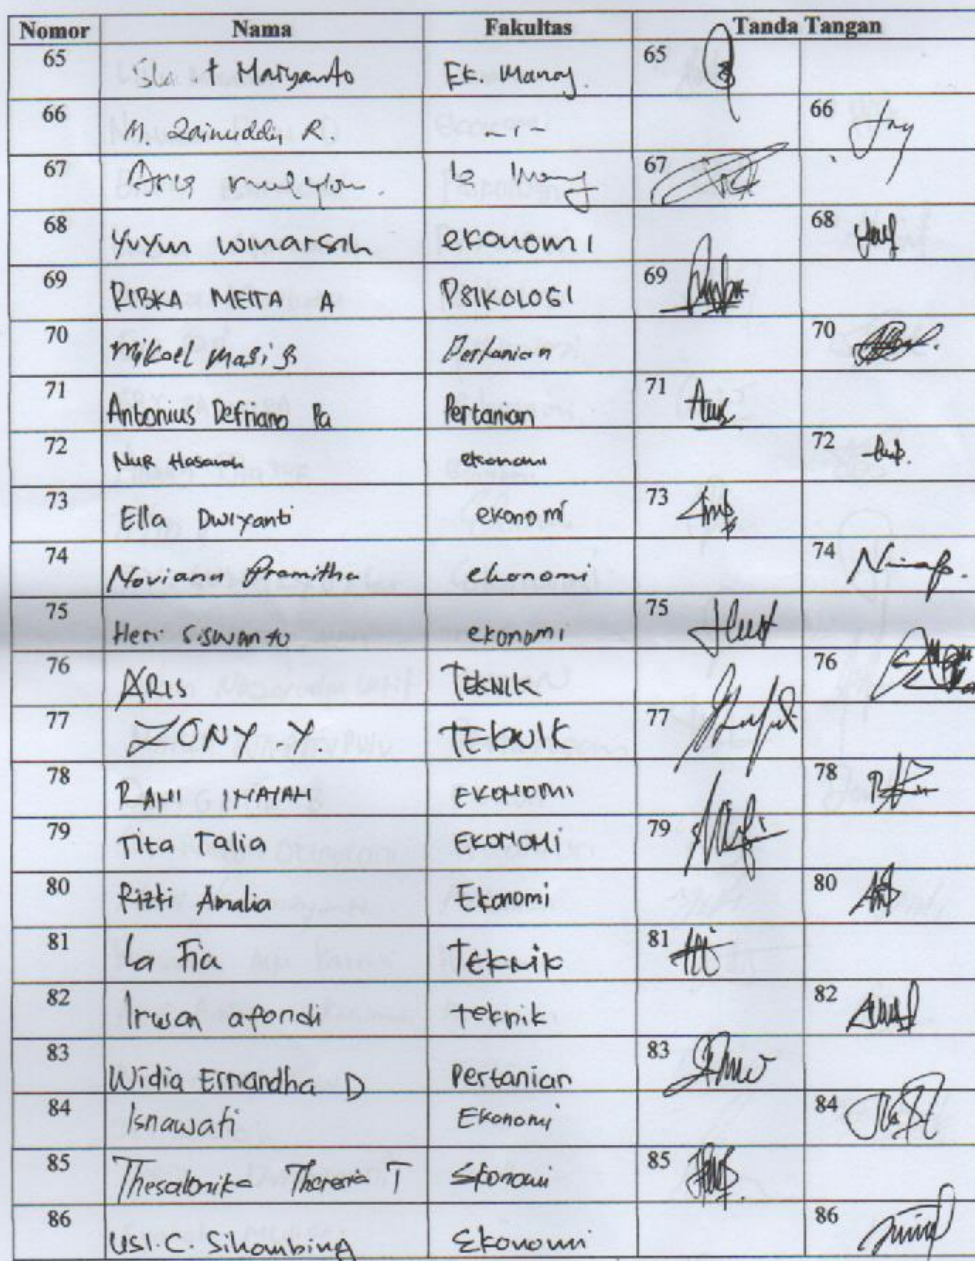 Nomor Nama Fakultas Tanda Tangan
65 t Maryanto Ek. Manaj. 65
66 M. Zainuddin R. - . - 66
67 Aris 67
68 Yuyun winarsih ekonomi 68
69 RIBKA MEITA A PSIKOLOGI 69
70 Mikael Masi S Pertanian 70
71 Antonius Defriano Pa Pertanian 71
72 NUR Hasanah ekonomi 72
73 Ella Dwiyanti ekonomi 73
74 Noviana Pramitha ekonomi 74
75 Heri Siswanto ekonomi 75
76 ARIS TEKNIK 76
77 ZONY Y. TEKNIK 77
78 RANI INAYAH EKONOMI 78
79 Tita Talia EKONOMI 79
80 Rizti Amalia Ekonomi 80
81 La Fia Teknik 81
82 Irwan afandi teknik 82
83 Widia Ernandha D Pertanian 83
84 Isnawati Ekonomi 84
85 Thesalonika Theresia T Ekonomi 85
86 USI. C. Sihombing Ekonomi 86